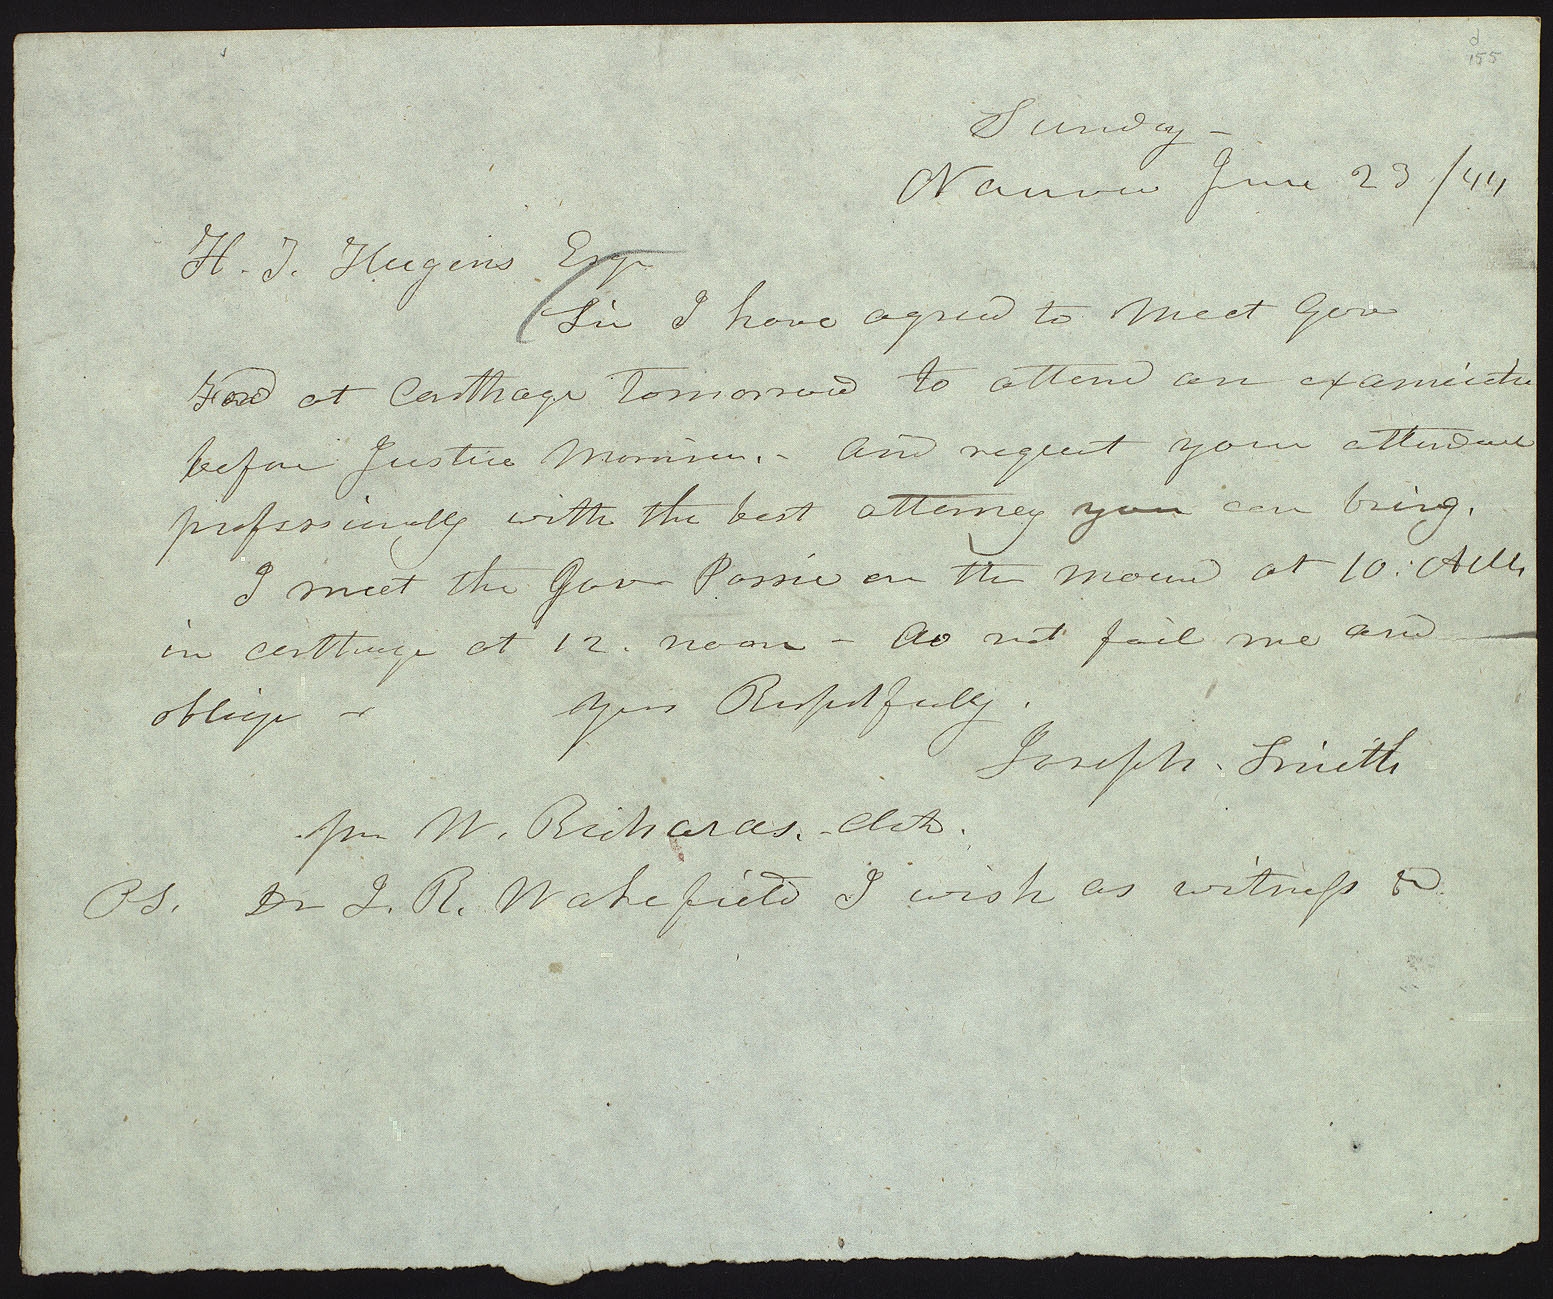 d
155
Sunday -
Nauvoo June 23 /44
H. T. Hugins Esqr
Sir I have agreed to meet Gov
Ford at Carthage tomorrow to attend an examination
before Justice Morrison. - and request your attendance
professionally with the best attorney you can bring.
I meet the Gov Possie on the mound at 10. A.M.
in carthage at 12. noon - do not fail me and
oblige - yours Respectfully.
Joseph. Smith
per W. Richards. clk.
P.S. Dr J. R. Wakefield I wish as witness &c